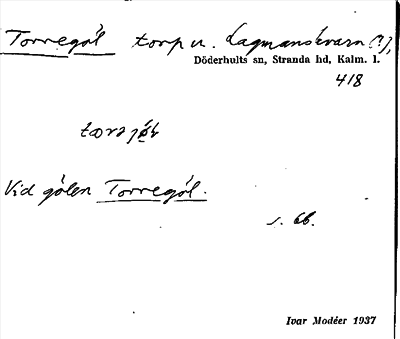 Torregöl torp u. Lagmanskvarn (?),
Döderhults sn, Stranda hd, Kalm. l.
418
Vid gölen Torregöl.
s. 66.
Ivar Modéer 1937